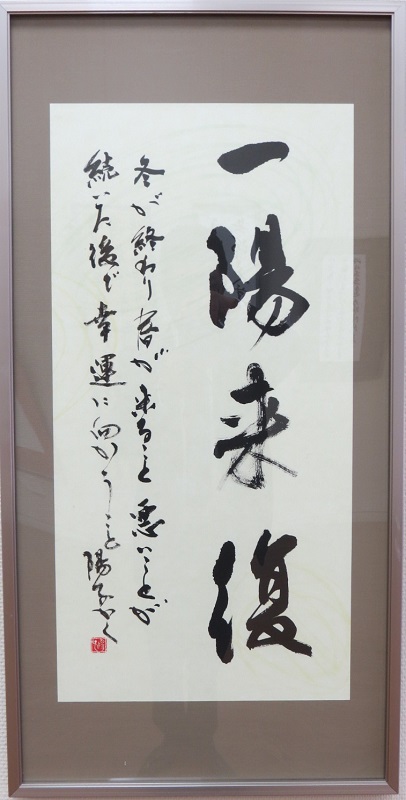 一陽来復
冬が終わり春が来ること悪いことが
続いた後で幸運に向かうこと 陽子かく